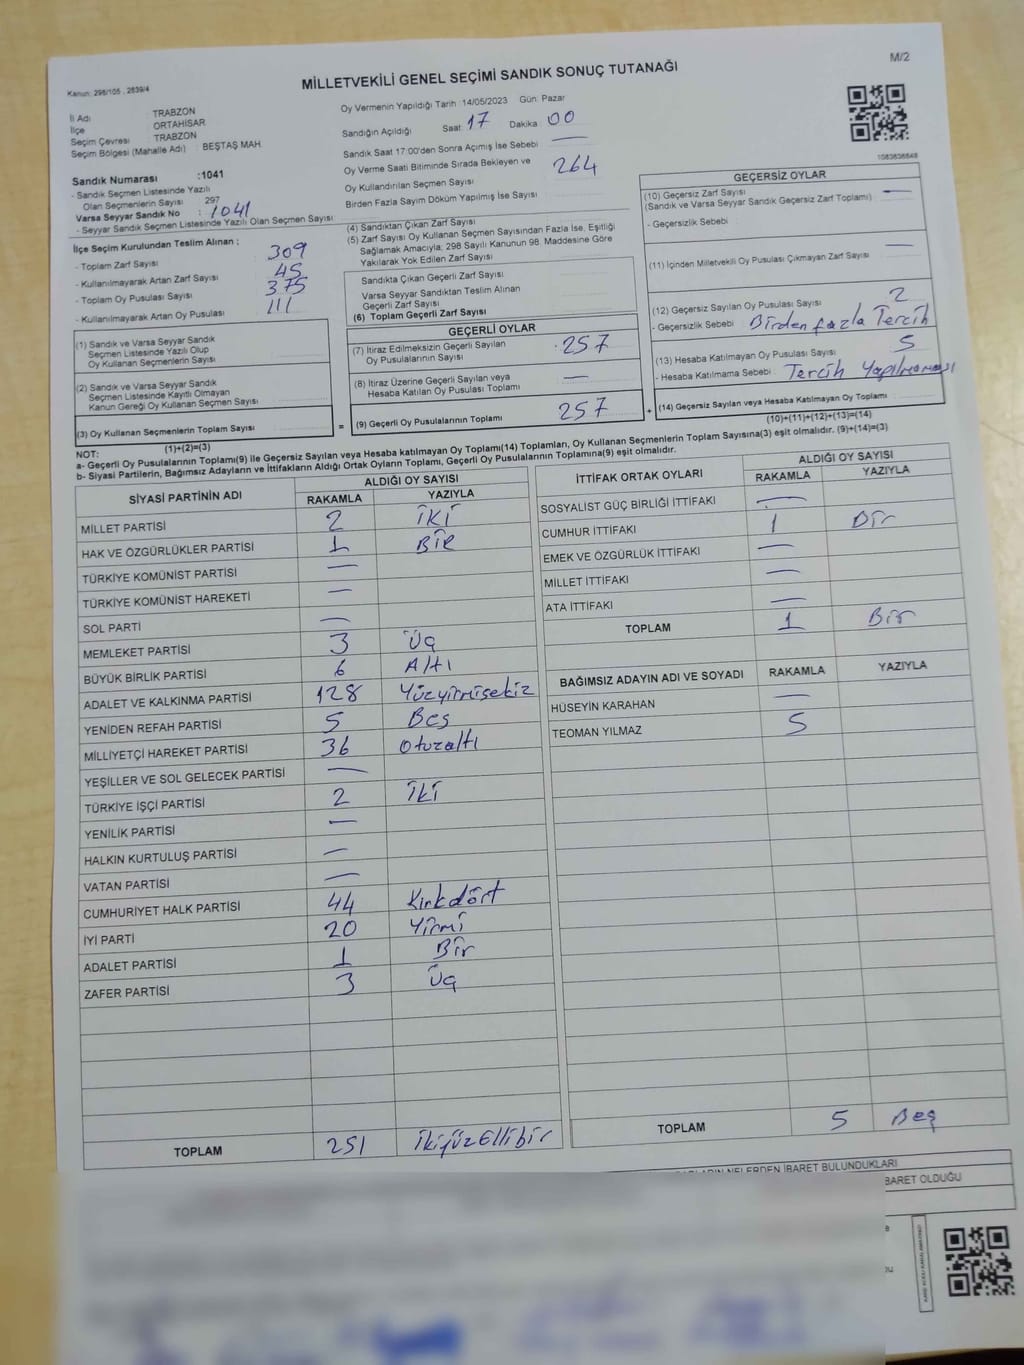 Kanun: 298/105 , 2839/4
M/2
MİLLETVEKİLİ GENEL SEÇİMİ SANDIK SONUÇ TUTANAĞI
İl Adı TRABZON
İlçe ORTAHİSAR
Seçim Çevresi TRABZON
Seçim Bölgesi (Mahalle Adı) : BEŞTAŞ MAH.
Sandık Numarası :1041
- Sandık Seçmen Listesinde Yazılı
Olan Seçmenlerin Sayısı 297
Varsa Seyyar Sandık No : 1041
- Seyyar Sandık Seçmen Listesinde Yazılı Olan Seçmen Sayısı
İlçe Seçim Kurulundan Teslim Alınan ;
- Toplam Zarf Sayısı 309
- Kullanılmayarak Artan Zarf Sayısı 45
- Toplam Oy Pusulası Sayısı 375
- Kullanılmayarak Artan Oy Pusulası 111
(1) Sandık ve Varsa Seyyar Sandık
Seçmen Listesinde Yazılı Olup
Oy Kullanan Seçmenlerin Sayısı
(2) Sandık ve Varsa Seyyar Sandık
Seçmen Listesinde Kayıtlı Olmayan
Kanun Gereği Oy Kullanan Seçmen Sayısı
(3) Oy Kullanan Seçmenlerin Toplam Sayısı
(1)+(2)=(3)
Oy Vermenin Yapıldığı Tarih :14/05/2023 Gün: Pazar
Sandığın Açıldığı Saat: 17 Dakika : 00
Sandık Saat 17:00'den Sonra Açımış İse Sebebi —
Oy Verme Saati Bitiminde Sırada Bekleyen ve
Oy Kullandırılan Seçmen Sayısı 264
Birden Fazla Sayım Döküm Yapılmış İse Sayısı
(4) Sandıktan Çıkan Zarf Sayısı
(5) Zarf Sayısı Oy Kullanan Seçmen Sayısından Fazla İse, Eşitliği
Sağlamak Amacıyla, 298 Sayılı Kanunun 98. Maddesine Göre
Yakılarak Yok Edilen Zarf Sayısı
Sandıkta Çıkan Geçerli Zarf Sayısı
Varsa Seyyar Sandıktan Teslim Alınan
Geçerli Zarf Sayısı
(6) Toplam Geçerli Zarf Sayısı
GEÇERLİ OYLAR
(7) İtiraz Edilmeksizin Geçerli Sayılan
Oy Pusulalarının Sayısı 257
(8) İtiraz Üzerine Geçerli Sayılan veya
Hesaba Katılan Oy Pusulası Toplamı —
= (9) Geçerli Oy Pusulalarının Toplamı 257 +
1083838848
GEÇERSİZ OYLAR
(10) Geçersiz Zarf Sayısı
(Sandık ve Varsa Seyyar Sandık Geçersiz Zarf Toplamı) —
- Geçersizlik Sebebi
(11) İçinden Milletvekili Oy Pusulası Çıkmayan Zarf Sayısı —
(12) Geçersiz Sayılan Oy Pusulası Sayısı 2
- Geçersizlik Sebebi : Birden fazla Tercih
(13) Hesaba Katılmayan Oy Pusulası Sayısı 5
- Hesaba Katılmama Sebebi : Tercih Yapılmaması
(14) Geçersiz Sayılan veya Hesaba Katılmayan Oy Toplamı
(10)+(11)+(12)+(13)=(14)
NOT:
a- Geçerli Oy Pusulalarının Toplamı(9) ile Geçersiz Sayılan veya Hesaba Katılmayan oy Toplamı(14) Toplamları, Oy Kullanan Seçmenlerin Toplam Sayısına(3) eşit olmalıdır. (9)+(14)=(3)
b- Siyasi Partilerin, Bağımsız Adayların ve İttifakların Aldığı Ortak Oyların Toplamı, Geçerli Oy Pusulalarının Toplamına(9) eşit olmalıdır.
SİYASİ PARTİNİN ADI ALDIĞI OY SAYISI
RAKAMLA YAZIYLA
MİLLET PARTİSİ 2 İKİ
HAK VE ÖZGÜRLÜKLER PARTİSİ 1 BİR
TÜRKİYE KOMÜNİST PARTİSİ —
TÜRKİYE KOMÜNİST HAREKETİ —
SOL PARTİ —
MEMLEKET PARTİSİ 3 Üç
BÜYÜK BİRLİK PARTİSİ 6 Altı
ADALET VE KALKINMA PARTİSİ 128 Yüzyirmisekiz
YENİDEN REFAH PARTİSİ 5 Beş
MİLLİYETÇİ HAREKET PARTİSİ 36 Otuzaltı
YEŞİLLER VE SOL GELECEK PARTİSİ —
TÜRKİYE İŞÇİ PARTİSİ 2 İki
YENİLİK PARTİSİ —
HALKIN KURTULUŞ PARTİSİ —
VATAN PARTİSİ —
CUMHURİYET HALK PARTİSİ 44 Kırkdört
İYİ PARTİ 20 Yirmi
ADALET PARTİSİ 1 Bir
ZAFER PARTİSİ 3 Üç
TOPLAM 251 İkiyüzEllibir
İTTİFAK ORTAK OYLARI ALDIĞI OY SAYISI
RAKAMLA YAZIYLA
SOSYALİST GÜÇ BİRLİĞİ İTTİFAKI —
CUMHUR İTTİFAKI 1 Bir
EMEK VE ÖZGÜRLÜK İTTİFAKI —
MİLLET İTTİFAKI —
ATA İTTİFAKI —
TOPLAM 1 Bir
BAĞIMSIZ ADAYIN ADI VE SOYADI RAKAMLA YAZIYLA
HÜSEYİN KARAHAN —
TEOMAN YILMAZ 5
TOPLAM 5 Beş
NELERDEN İBARET BULUNDUKLARI
BARET OLDUĞU